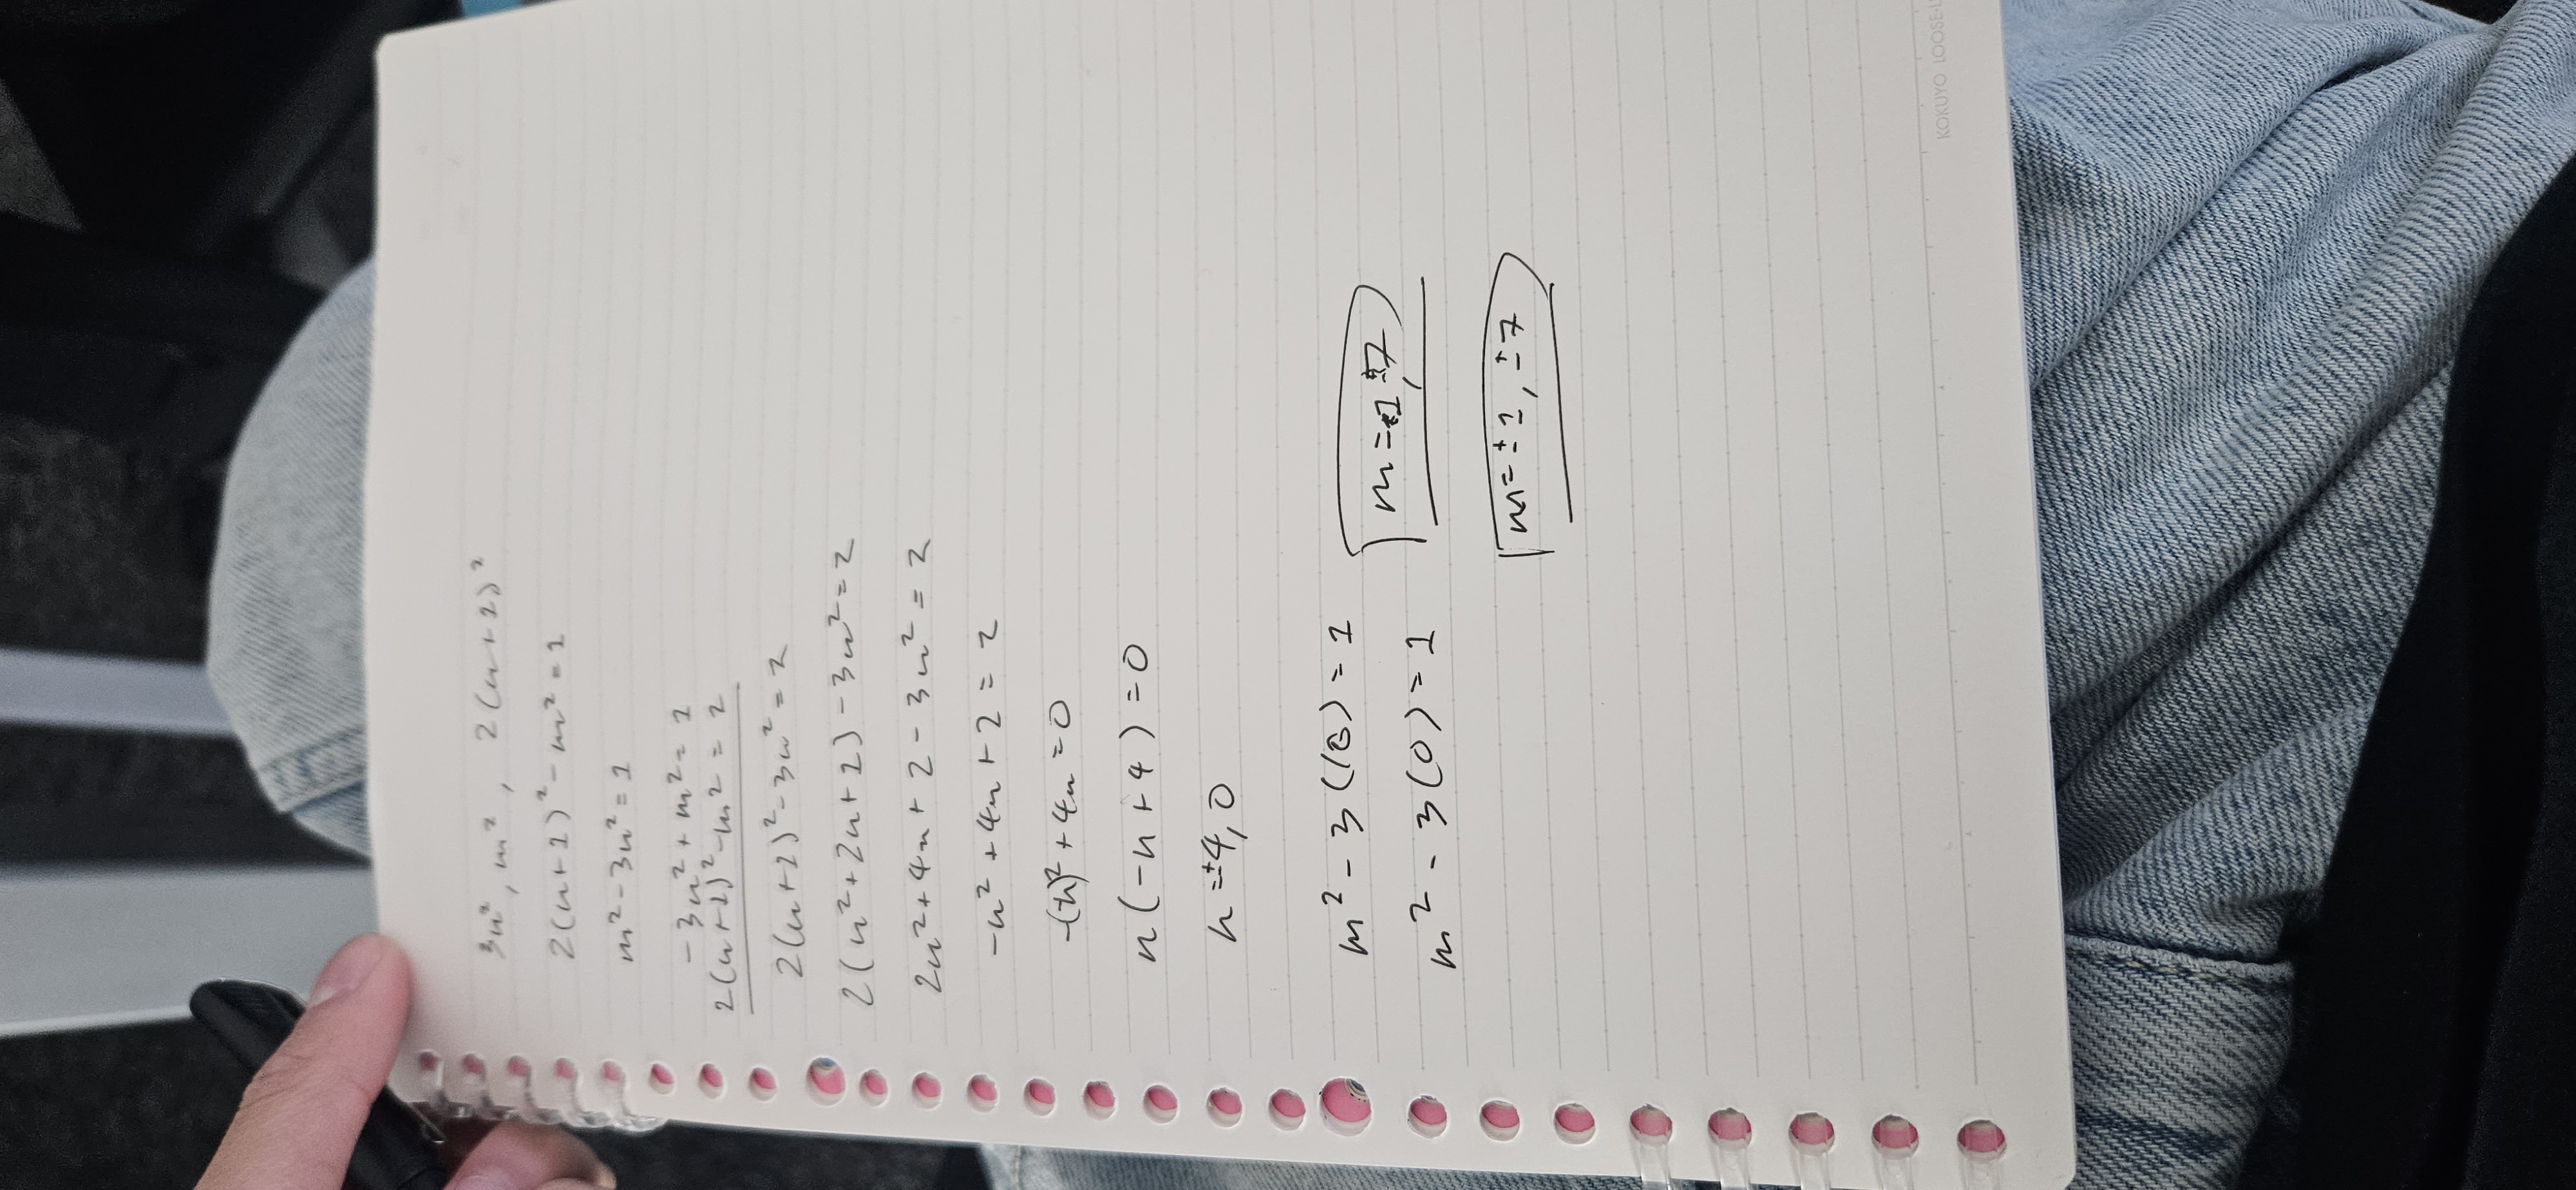 3n², m², 2(n+1)²
2(n+1)² - m² = 1
m² - 3n² = 1
-3n² + m² = 1
2(n+1)² - m² = 1
2(n+1)² - 3n² = 2
2(n² + 2n + 1) - 3n² = 2
2n² + 4n + 2 - 3n² = 2
-n² + 4n + 2 = 2
-(n)² + 4n = 0
n(-n + 4) = 0
n = ±4, 0
m² - 3(16) = 1
m = ±1, ±7
m² - 3(0) = 1
m = ±1, ±7
KOKUYO LOOSE-L